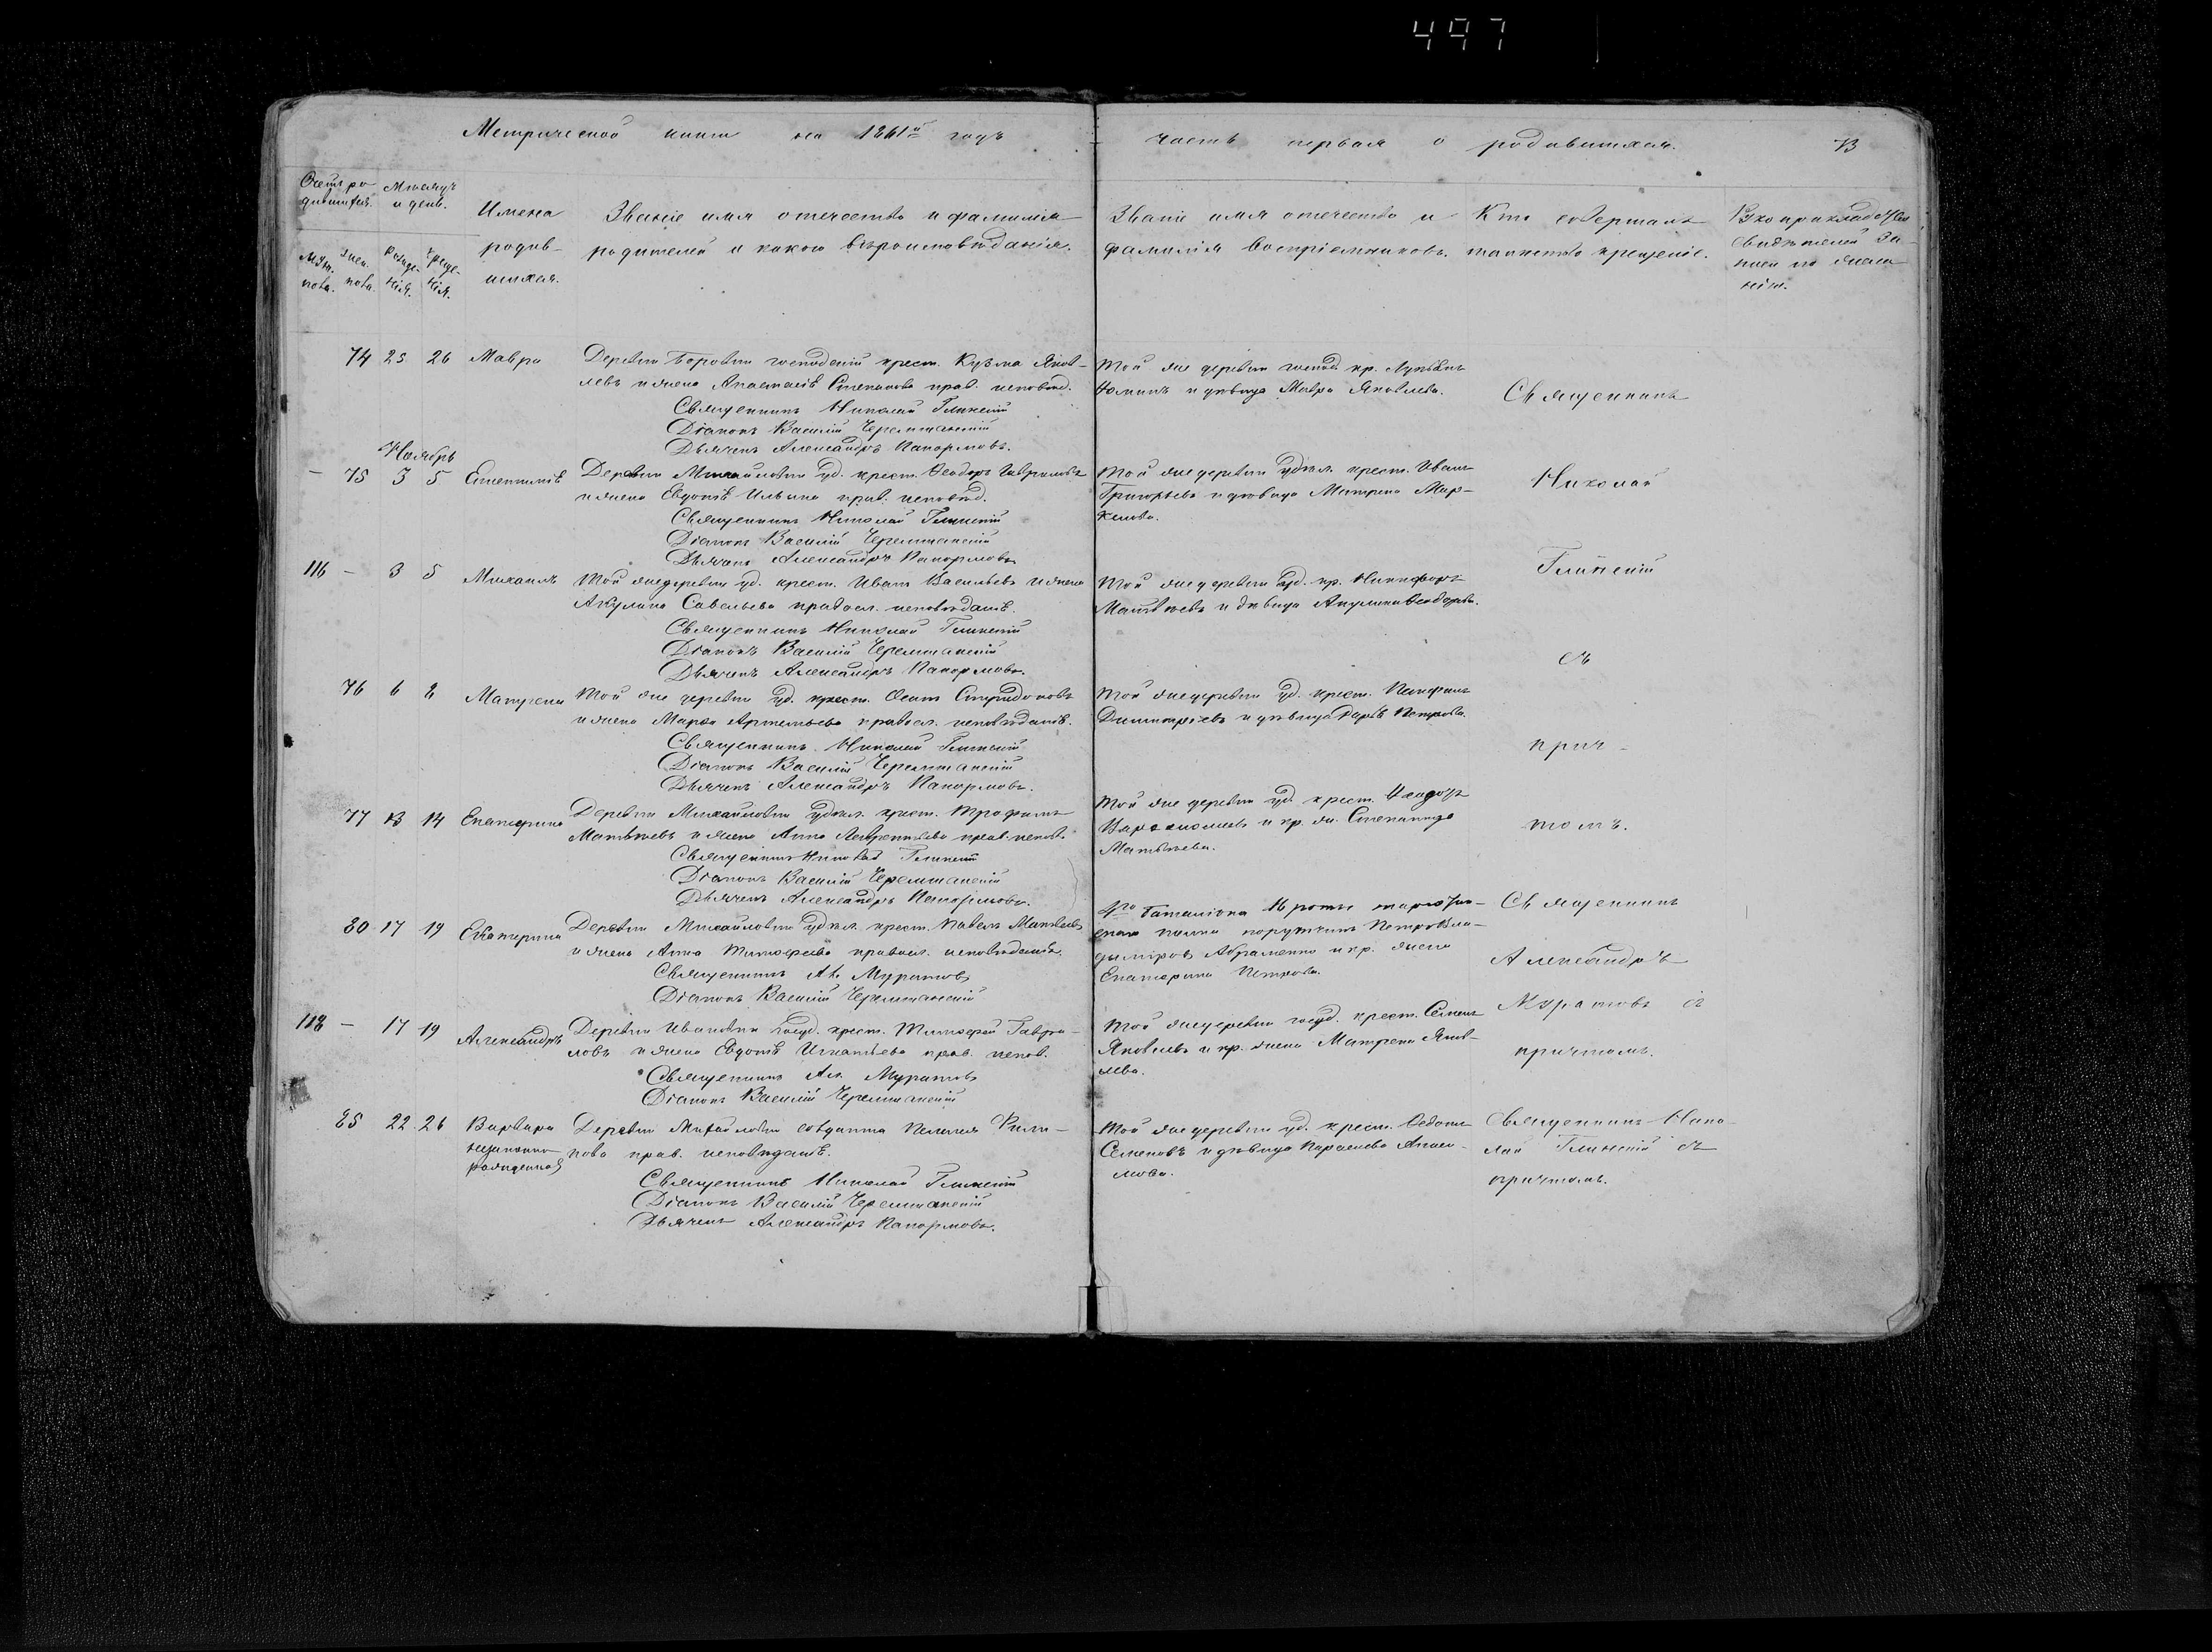 497
Метрической книги на 1861й годъ
часть первая о родившихся.
73
Счетъ ро-
дившихся.
Мѣсяцъ
и день.
Муж.
пола.
Жен.
пола.
Рожде-
нія.
Креще-
нія.
Имена
родив-
шихся.
Званіе имя отечество и фамилія
родителей и какого вѣроисповѣданія.
Званіе имя отечество и
фамилія воспріемниковъ.
Кто совершалъ
таинство крещеніе.
свидѣтелей за-
писи по жела-
нію.
74 25 26 Мавра
Деревни Боровки господскій крест. Кузма Яков-
левъ и жена Анастасія Степанова прав. исповѣд.
Священникъ Николай Глинскій
Діаконъ Василій Черемшанскій
Дьячекъ Александръ Папормовъ.
Той же деревни господ. кр. Лукьянъ
Фоминъ и дѣвица Мавра Яковлева.
Ноябрь
— 75 3 5
Деревни Михайловки уд. крест. Ѳеодоръ Гавриловъ
и жена Евдокія Ильина прав. исповѣд.
Священникъ Николай Глинскій
Діаконъ Василій Черемшанскій
Дьячекъ Александръ Папормовъ
Той же деревни удѣл. крест. Иванъ
Григорьевъ и дѣвица Матрена Мар-
келова.
116 — 3 5 Михаилъ
Той же деревни уд. крест. Иванъ Васильевъ и жена
Акулина Савельева правосл. исповѣданія.
Священникъ Николай Глинскій
Діаконъ Василій Черемшанскій
Дьячекъ Александръ Папормовъ.
Той же деревни уд. кр. Никифоръ
Матвѣевъ и дѣвица Акулина Ѳеодорова.
76 6 8 Матрена
Той же деревни уд. крест. Осипъ Спиридоновъ
и жена Марѳа Артемьева правосл. исповѣданія.
Священникъ Николай Глинскій
Діаконъ Василій Черемшанскій
Дьячекъ Александръ Папормовъ.
Той же деревни уд. крест. Памфилъ
Димитріевъ и дѣвица Дарья Петрова.
77 13 14 Екатерина
Деревни Михайловки удѣл. крест. Трофимъ
Матвѣевъ и жена Анна Лаврентьева прав. испов.
Священникъ Николай Глинскій
Діаконъ Василій Черемшанскій
Дьячекъ Александръ Папормовъ.
Той же деревни уд. крест. Ѳеодоръ
Варѳоломеевъ и кр. ж. Степанида
Матвѣева.
Священникъ
Николай
Глинскій
съ
прич-
томъ.
80 17 19 Екатерина
Деревни Михайловки удѣл. крест. Павелъ Матвѣевъ
и жена Анна Тимофеева правосл. исповѣданія.
Священникъ Ал. Муратовъ
Діаконъ Василій Черемшанскій
4го баталіона 16 роты
скаго полка поручикъ Петръ Вла-
диміровъ Абраменко и кр. жена
Екатерина Петрова.
Священникъ
Александръ
Муратовъ съ
причтомъ.
118 — 17 19 Александръ
Деревни Ивановки госуд. крест. Тимофей Гаври-
ловъ и жена Евдокія Игнатьева прав. испов.
Священникъ Ал. Муратовъ
Діаконъ Василій Черемшанскій
Той же деревни госуд. крест. Семенъ
Яковлевъ и кр. жена Матрена Яков-
лева.
85 22 26 Варвара
незаконно-
рожденная
Деревни Михайловки солдатка Пелагея Фили-
пова прав. исповѣданія.
Священникъ Николай Глинскій
Діаконъ Василій Черемшанскій
Дьячекъ Александръ Папормовъ.
Той же деревни уд. крест.
Семеновъ и дѣвица Параскева
Священникъ Нико-
лай Глинскій съ
причтомъ.